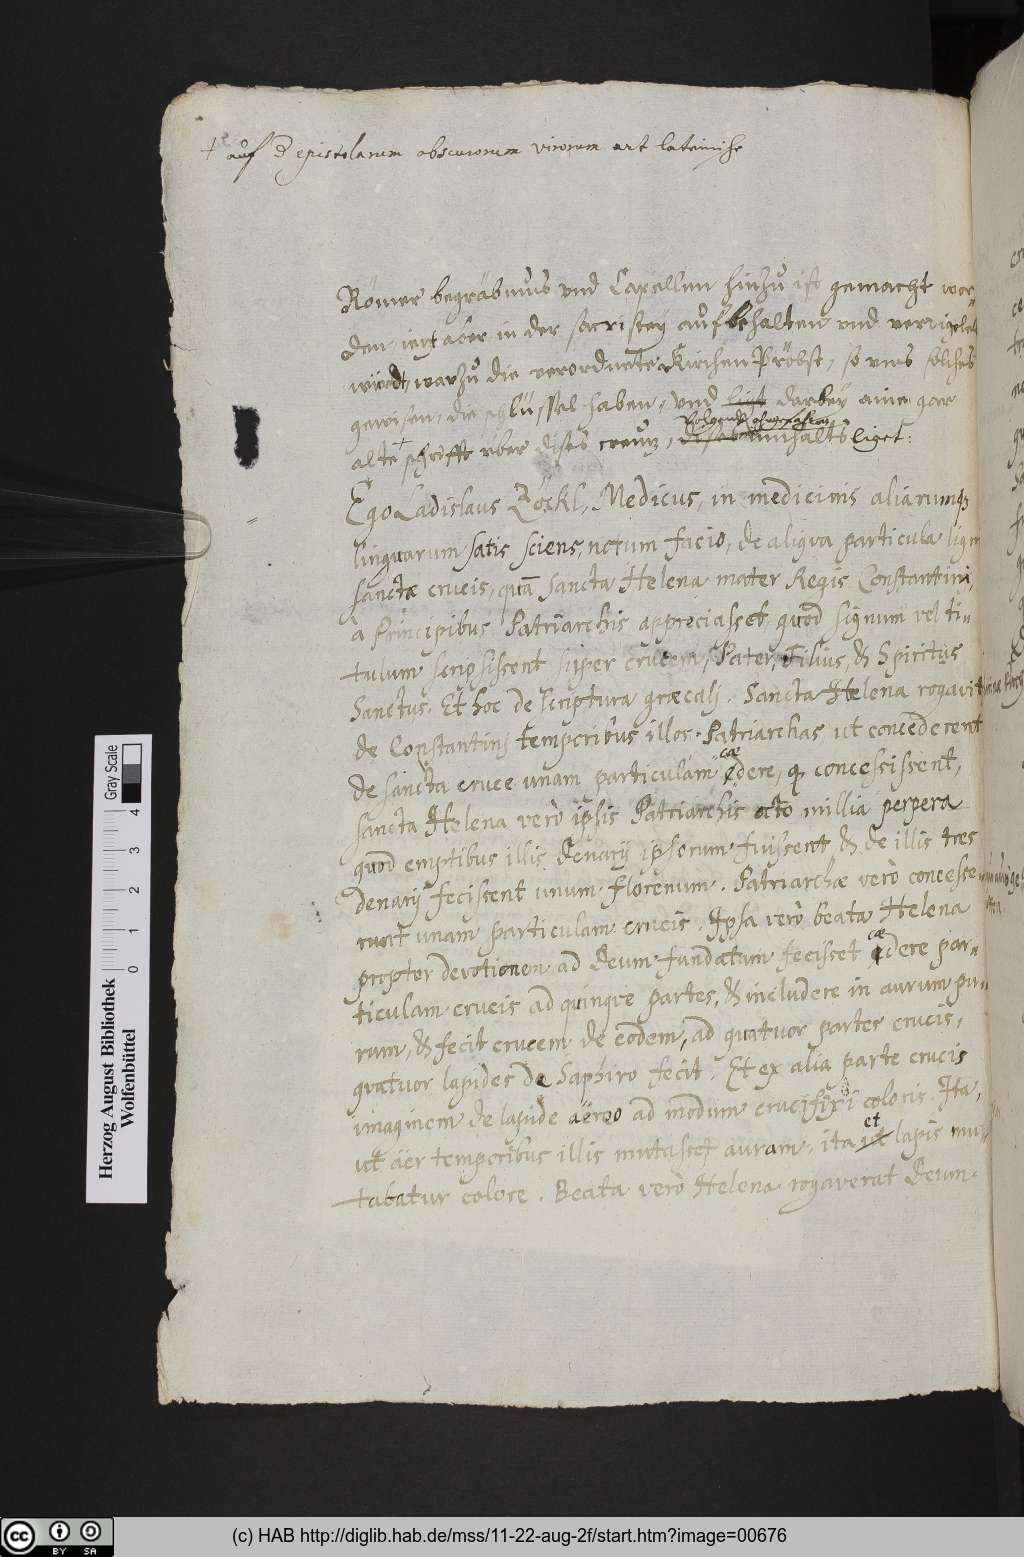 + auf d epistolarum obscurorum virorum art lateinische
Römer begräbnus und Capellen hinzu ist gemacht wor=
den, ietz aber in der sacristey aufbehalten und verrigelet
würdt, warzu die verordnete Kirchen Pröbst, so uns solches
gewisen, die schlüssel haben, und ligt darbey eine gar
alte + schrifft über dises creuz, innhalts liget:
Ego Ladislaus Röckl, Medicus, in medicinis aliarumq
linguarum satis sciens, notum facio, de aliqua particula lign
sanctæ crucis, quā Sancta Helena mater Regis Constantini,
à Principibus Patriarchis appreciasset, quod signum vel ti=
tulum scripsissent super crucem, Pater, Filius, & Spiritus
Sanctus. Et hoc de scriptura græcalj. Sancta Helena rogavit
de Constantinj temporibus illos Patriarchas ut concederent
de sancta cruce unam particulam cædere, q concessissent,
sancta Helena verò ipsis Patriarchis octo millia perpera
quod emptibus illis denarij ipsorum fuissent & de illis tres
denarij fecissent unum florenum. Patriarchæ verò concesse
runt unam particulam crucis. Ipsa verò beata Helena
propter devotionem ad Deum fundatum fecisset cædere par=
ticulam crucis ad quinque partes, & includere in aurum pu=
rum, & fecit crucem de eodem, ad quatuor partes crucis,
quatuor lapides de Saphiro fecit. Et ex alia parte crucis
imaginem de lapide aëreo ad modum crucifixi coloris. Ita,
ut äer temporibus illis mutasset auram, ita ut et lapis mu=
tabatur colore. Beata verò Helena rogaverat Deum.
Gray Scale
0 1 2 3 4
Herzog August Bibliothek
Wolfenbüttel
cc BY SA
(c) HAB http://diglib.hab.de/mss/11-22-aug-2f/start.htm?image=00676